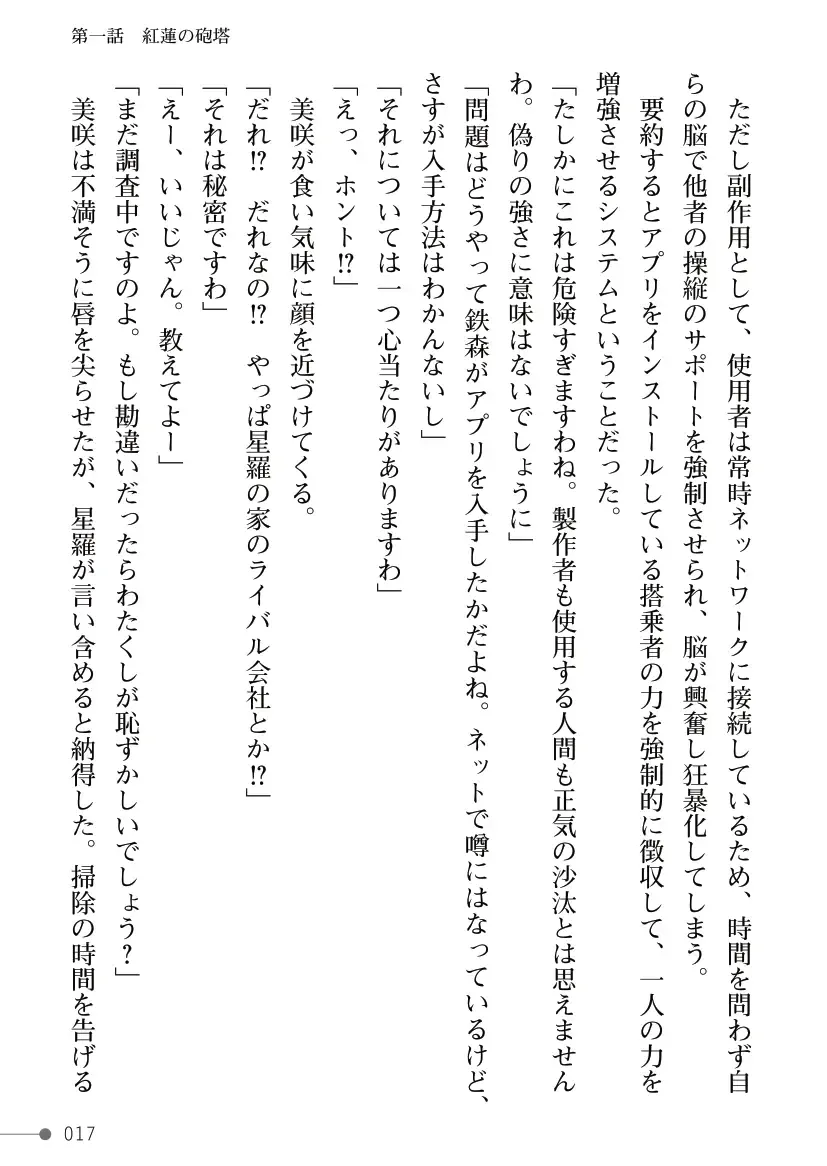 第一話　紅蓮の砲塔
　ただし副作用として、使用者は常時ネットワークに接続しているため、時間を問わず自
らの脳で他者の操縦のサポートを強制させられ、脳が興奮し狂暴化してしまう。
　要約するとアプリをインストールしている搭乗者の力を強制的に徴収して、一人の力を
増強させるシステムということだった。
「たしかにこれは危険すぎますわね。製作者も使用する人間も正気の沙汰とは思えません
わ。偽りの強さに意味はないでしょうに」
「問題はどうやって鉄森がアプリを入手したかだよね。ネットで噂にはなっているけど、
さすが入手方法はわかんないし」
「それについては一つ心当たりがありますわ」
「えっ、ホント!?」
　美咲が食い気味に顔を近づけてくる。
「だれ!?　だれなの!?　やっぱ星羅の家のライバル会社とか!?」
「それは秘密ですわ」
「えー、いいじゃん。教えてよー」
「まだ調査中ですのよ。もし勘違いだったらわたくしが恥ずかしいでしょう？」
　美咲は不満そうに唇を尖らせたが、星羅が言い含めると納得した。掃除の時間を告げる
017